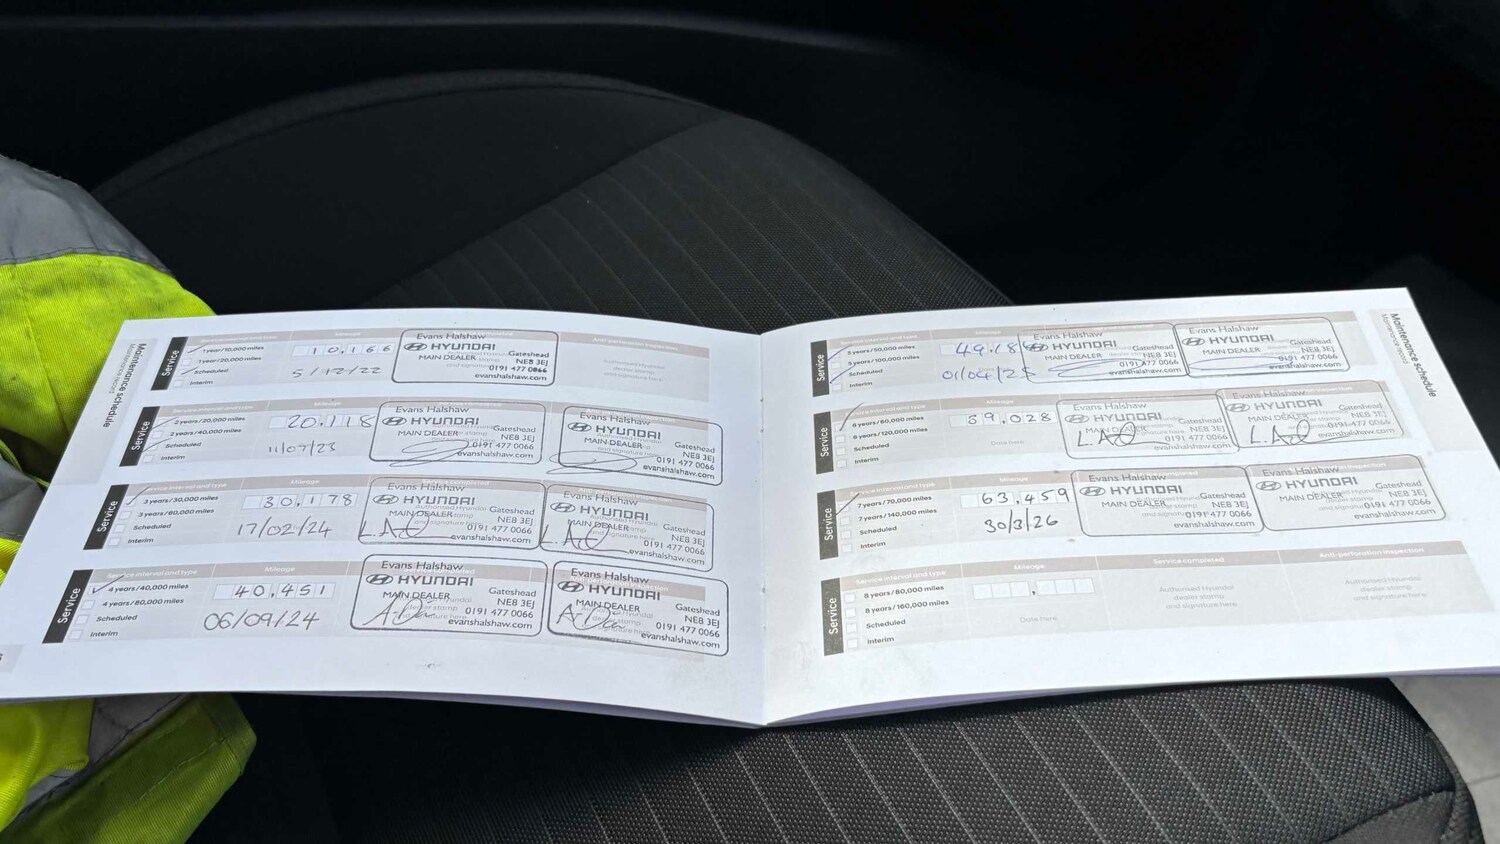 Maintenance schedule
Service
Mileage
1 year/10,000 miles
1 year/20,000 miles
Scheduled
Interim
10,166
5/12/22
Evans Halshaw
HYUNDAI
MAIN DEALER
Gateshead
NE8 3EJ
0191 477 0066
evanshalshaw.com
Anti-perforation inspection
Authorised Hyundai
dealer stamp
and signature here
Service
2 years/20,000 miles
2 years/40,000 miles
Scheduled
Interim
Mileage
20,118
11/07/23
Evans Halshaw
HYUNDAI
MAIN DEALER
Gateshead
NE8 3EJ
0191 477 0066
evanshalshaw.com
Evans Halshaw
HYUNDAI
MAIN DEALER
Gateshead
NE8 3EJ
0191 477 0066
evanshalshaw.com
Service
Service interval and type
3 years/30,000 miles
3 years/60,000 miles
Scheduled
Interim
Mileage
30,178
17/02/24
Evans Halshaw
HYUNDAI
MAIN DEALER
Gateshead
NE8 3EJ
0191 477 0066
evanshalshaw.com
Evans Halshaw
HYUNDAI
MAIN DEALER
Gateshead
NE8 3EJ
0191 477 0066
evanshalshaw.com
Service
Service interval and type
4 years/40,000 miles
4 years/80,000 miles
Scheduled
Interim
Mileage
40,451
06/09/24
Evans Halshaw
HYUNDAI
MAIN DEALER
Gateshead
NE8 3EJ
0191 477 0066
evanshalshaw.com
Evans Halshaw
HYUNDAI
MAIN DEALER
Gateshead
NE8 3EJ
0191 477 0066
evanshalshaw.com
Maintenance schedule
Service
5 years/50,000 miles
5 years/100,000 miles
Scheduled
Interim
Mileage
49,18
01/04/25
Evans Halshaw
HYUNDAI
MAIN DEALER
Gateshead
NE8 3EJ
0191 477 0066
evanshalshaw.com
Evans Halshaw
HYUNDAI
MAIN DEALER
Gateshead
NE8 3EJ
0191 477 0066
evanshalshaw.com
Service
Service interval and type
6 years/60,000 miles
6 years/120,000 miles
Scheduled
Interim
59,028
Date here
Evans Halshaw
HYUNDAI
MAIN DEALER
Gateshead
NE8 3EJ
0191 477 0066
evanshalshaw.com
Evans Halshaw
HYUNDAI
MAIN DEALER
Gateshead
NE8 3EJ
0191 477 0066
evanshalshaw.com
Service
Service interval and type
7 years/70,000 miles
7 years/140,000 miles
Scheduled
Interim
Mileage
63,459
30/3/26
Evans Halshaw
HYUNDAI
MAIN DEALER
Gateshead
NE8 3EJ
0191 477 0066
evanshalshaw.com
Evans Halshaw
HYUNDAI
MAIN DEALER
Gateshead
NE8 3EJ
0191 477 0066
evanshalshaw.com
Service
Service interval and type
8 years/80,000 miles
8 years/160,000 miles
Scheduled
Interim
Mileage
Date here
Service completed
Authorised Hyundai
dealer stamp
and signature here
Anti-perforation inspection
Authorised Hyundai
dealer stamp
and signature here